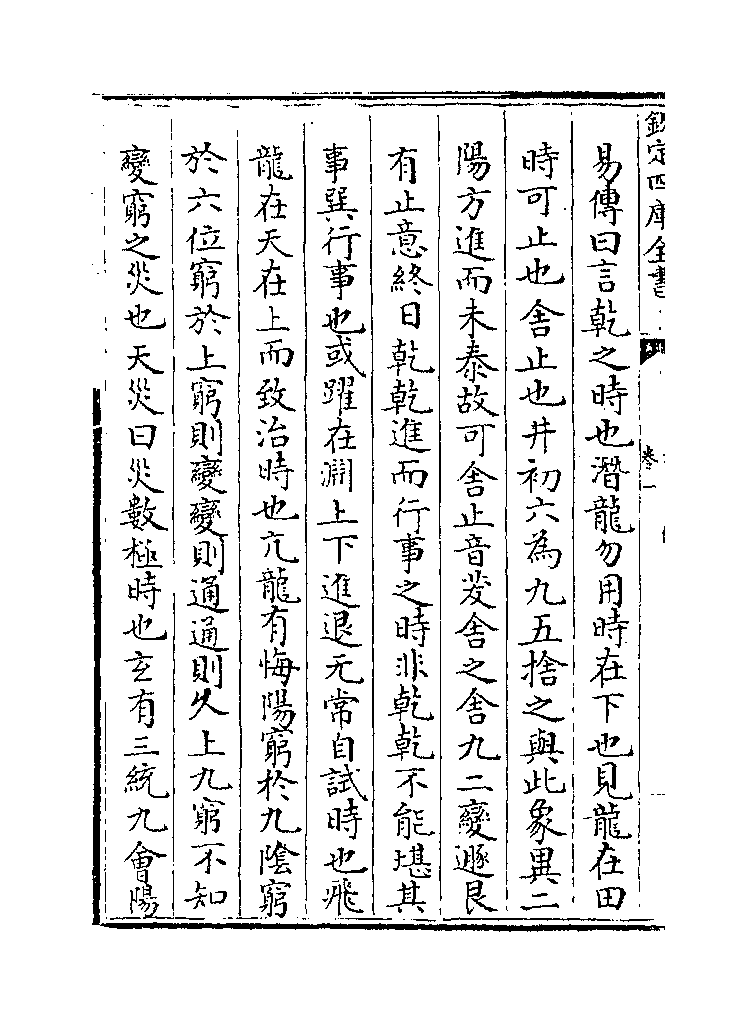 欽定四庫全書
卷一
易傳曰言乾之時也潛龍勿用時在下也見龍在田
時可止也舍止也井初六為九五捨之與此象異二
陽方進而未泰故可舍止音茇舍之舍九二變遯艮
有止意終日乾乾進而行事之時非乾乾不能堪其
事巽行事也或躍在淵上下進退无常自試時也飛
龍在天在上而致治時也亢龍有悔陽窮於九陰窮
於六位窮於上窮則變變則通通則久上九窮不知
變窮之災也天災曰災數極時也玄有三統九會陽